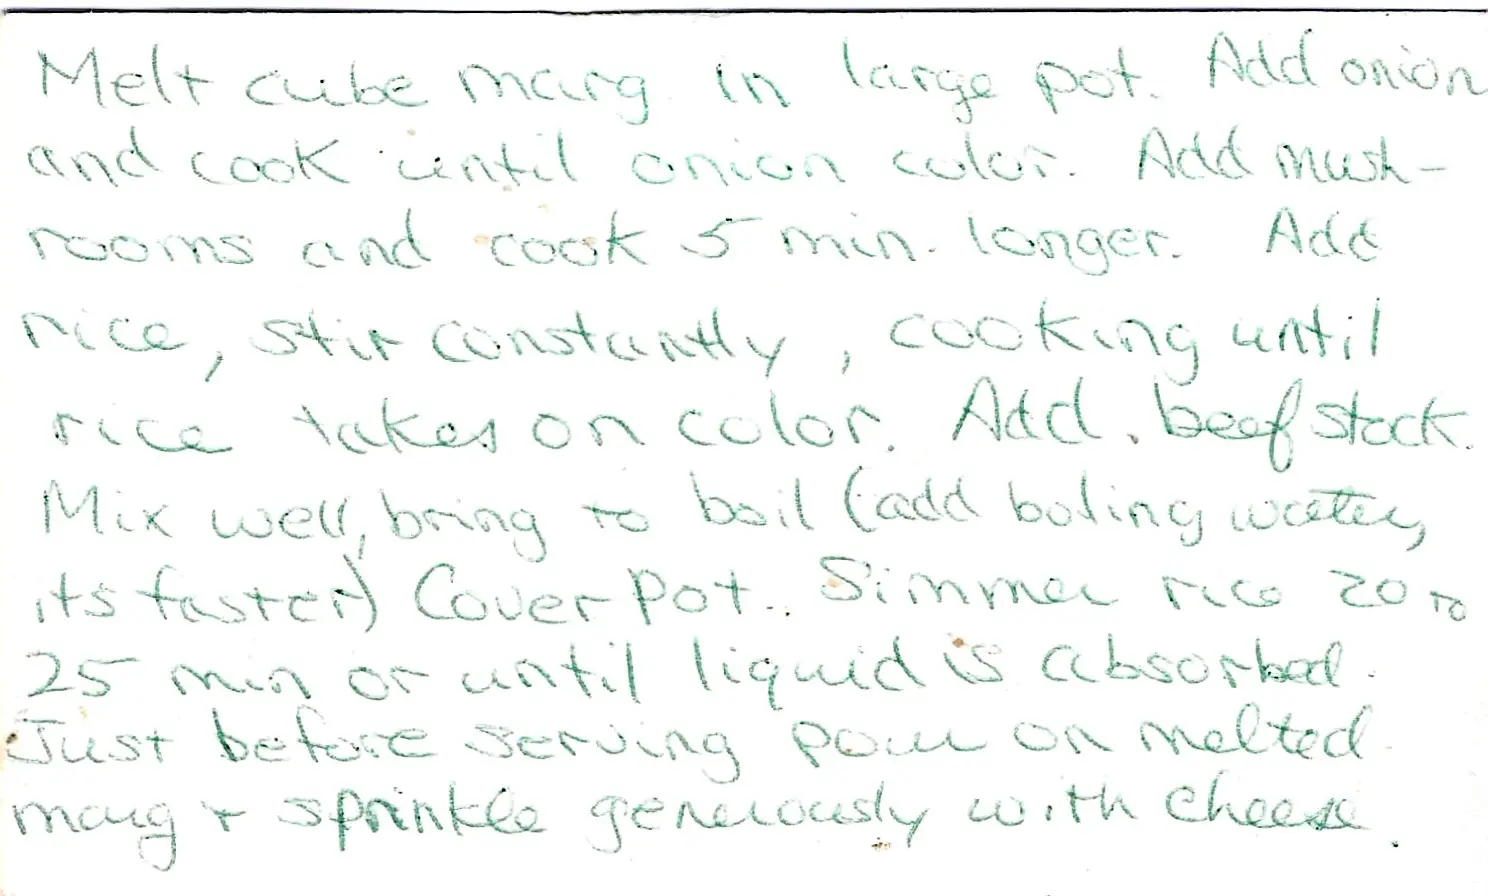 Melt cube marg in large pot. Add onion
and cook until onion color. Add mush-
rooms and cook 5 min. longer. Add
rice, stir constantly, cooking until
rice takes on color. Add beef stock.
Mix well, bring to boil (add boling water,
its faster) Cover pot. Simmer rice 20 to
25 min or until liquid is absorbed.
Just before serving pour on melted
marg + sprinkle generously with cheese.